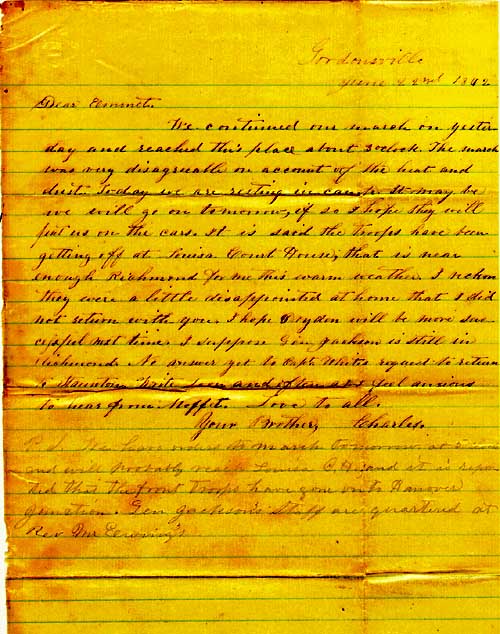 Gordonsville
June 22nd 1862
Dear Emmet.
We continued our march on yester
day and reached this place about 3 oclock. The march
was very disagreeable on account of the heat and
dust. Today we are resting in camp. It may be
we will go on tomorrow, if so I hope they will
put us on the cars. It is said the troops have been
getting off at Louisa Court House, that is near
enough Richmond for me this warm weather. I reckon
they were a little disappointed at home that I did
not return with you. I hope will be more suc
cessful next time. I suppose Gen Jackson is still in
Richmond. No answer yet to Capt. White's regard to return
to Staunton. Write soon and often as I feel anxious
to hear from Moffet. Love to all.
Your Brother, Charles.
P.S. We have orders to march tomorrow at
and will probably reach Louisa C.H. and it is repor
ted that the front troops have gone on to Hanover
Junction. Gen Jackson's Staff are quartered at
Rev Mr Ewing's